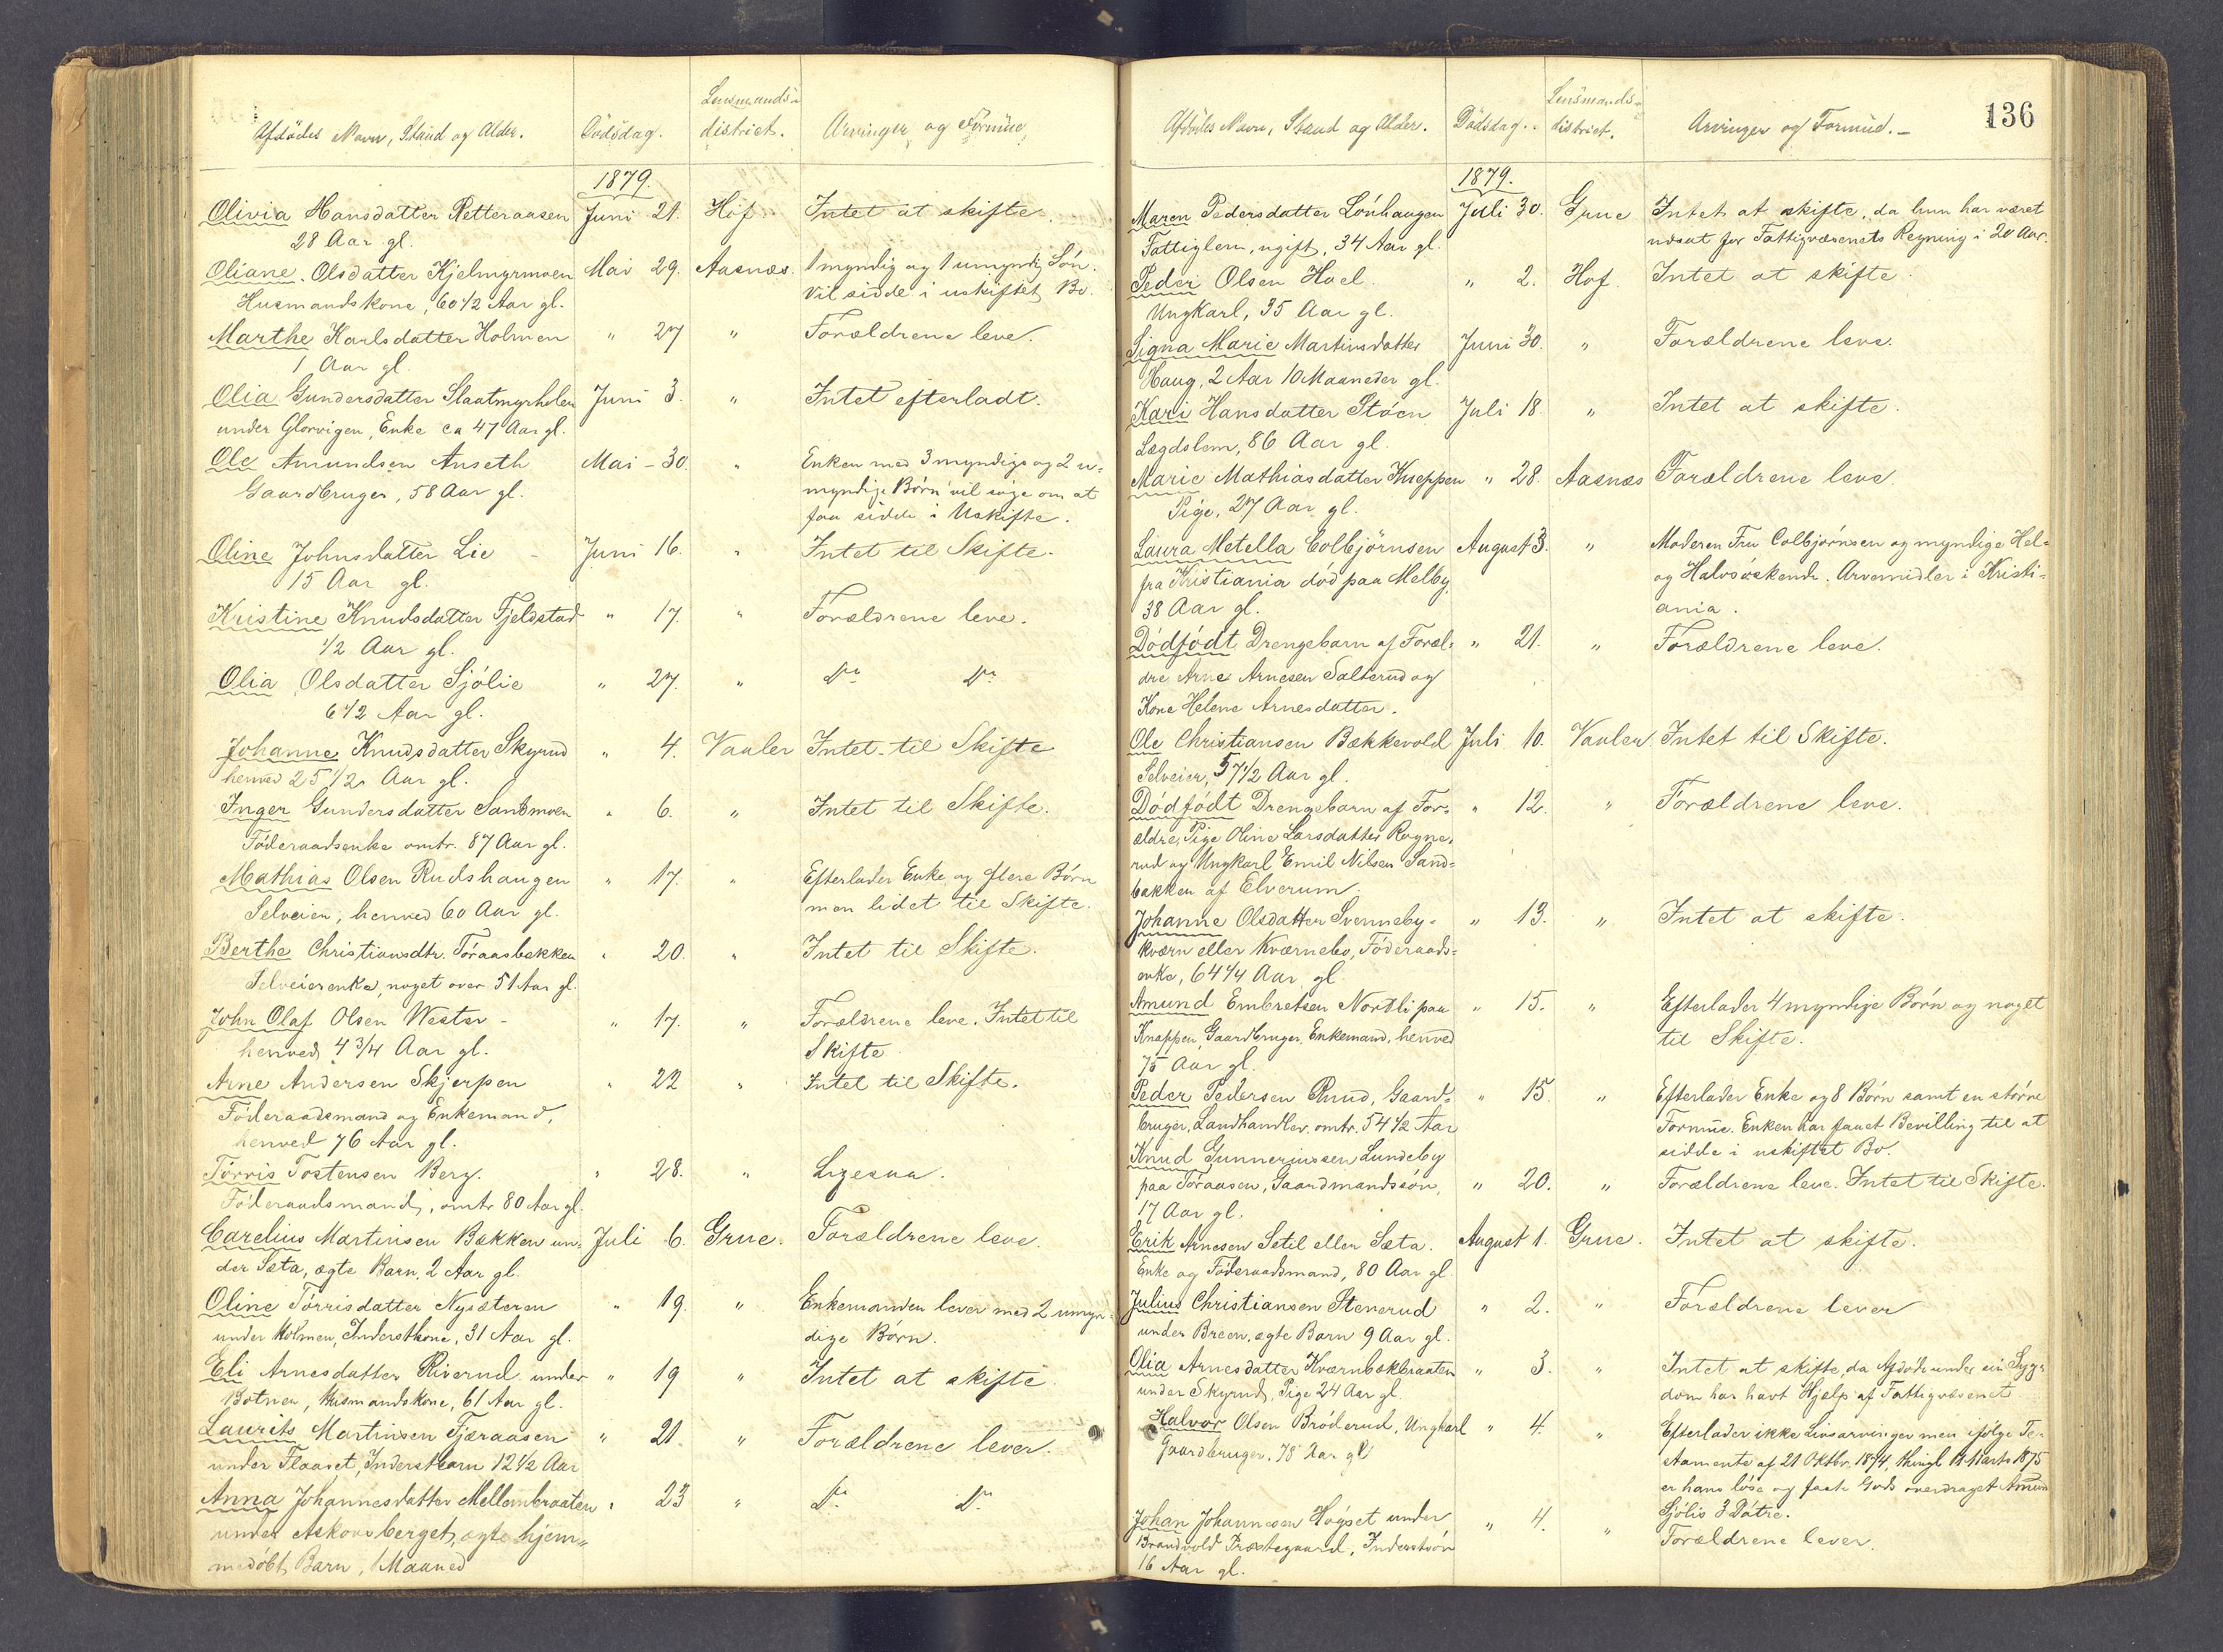 Afdødes Navn, Stand og Alder.
Dødsdag.
Lensmands-
district.
Arvinger og Formue.
1879.
Olivia Hansdatter Retteraasen Juni 21. Hof. Intet at skifte.
28 Aar gl.
Oliane Olsdatter Kjelmyrmoen Mai 29. Aasnæs. 1 myndig og 1 umyndig Søn.
Husmandskone, 60 1/2 Aar gl. Vil sidde i uskiftet Bo.
Marthe Karlsdatter Holmen " 27 " Forældrene leve.
1 Aar gl.
Olia Gundersdatter Slaatmyrholen Juni 3. " Intet efterladt.
under Glorvigen, Enke ca 47 Aar gl.
Ole Amundsen Anseth Mai - 30. " Enken med 3 myndige og 2 u-
Gaardbruger, 58 Aar gl. myndige Børn vil søge om at
faa sidde i Uskifte.
Oline Johnsdatter Lie - Juni 16. " Intet til Skifte.
15 Aar gl.
Kristine Knudsdatter Fjeldstad " 17. " Forældrene leve.
1/2 Aar gl.
Olia Olsdatter Sjølie " 27. " Do Do
6 1/2 Aar gl.
Johanne Knudsdatter Skyrud " 4. Vaaler Intet til Skifte
henved 25 1/2 Aar gl.
Inger Gundersdatter Sandmoen " 6. " Intet til Skifte.
Føderaadsenke omtr. 87 Aar gl.
Mathias Olsen Rudshaugen " 17. " Efterlader Enke og flere Børn
Selveier, henved 60 Aar gl. men lidet til Skifte.
Berthe Christiansdtr. Tøraasbækken " 20. " Intet til Skifte.
Selveierenke, noget over 51 Aar gl.
John Olaf Olsen Wester - " 17. " Forældrene leve. Intet til
henved 4 3/4 Aar gl. Skifte
Arne Andersen Skjerpen " 22 " Intet til Skifte.
Føderaadsmand og Enkemand,
henved 76 Aar gl.
Tørris Tostensen Berg. " 28. " Ligesaa.
Føderaadsmand, omtr 80 Aar gl.
Carelius Martinsen Bækken un- Juli 6. Grue. Forældrene leve.
der Sæta, ægte Barn, 2 Aar gl.
Oline Tørrisdatter Nysæteren " 19. " Enkemanden lever med 2 umyn-
under Holmen, Inderstkone, 31 Aar gl. dige Børn.
Eli Arnesdatter Riverud under " 19 " Intet at skifte
Botner, Husmandskone, 61 Aar gl.
Laurits Martinsen Tjæraasen " 21. " Forældrene lever.
under Flaaset, Inderstbarn 12 1/2 Aar
Anna Johannesdatter Mellembraaten " 23 " Do Do
under Askovsberget, ægte hjem-
medøbt Barn, 1 Maaned
136
Afdødes Navn, Stand og Alder.
Dødsdag.
Lensmands-
district.
Arvinger og Formue. -
1879.
Maren Pedersdatter Lønhaugen Juli 30. Grue Intet at skifte, da hun har været
Fattiglem, ugift, 34 Aar gl. udsat for Fattigvæsenets Regning i 20 Aar.
Peder Olsen Hoel. " 2. Hof. Intet at skifte.
Ungkarl, 35 Aar gl.
Signa Marie Martinsdatter Juni 30. " Forældrene leve.
Haug, 2 Aar 10 Maaneder gl.
Kari Hansdatter Støen Juli 18. " Intet at skifte.
Lægdslem, 86 Aar gl.
Marie Mathiasdatter Kneppen " 28. Aasnæs Forældrene leve.
Pige, 27 Aar gl.
Laura Metella Colbjørnsen August 3. " Moderen Fru Colbjørnsen og myndige Hel-
fra Kristiania død paa Melby, og Halvsøskende. Arvemidler i Kristi-
38 Aar gl. ania.
Dødfødt Drengebarn af Foræl- " 21. " Forældrene leve.
dre Arne Arnesen Salterud og
Kone Helene Arnesdatter.
Ole Christiansen Bækkevold Juli 10. Vaaler Intet til Skifte.
Selveier, 57 1/2 Aar gl.
Dødfødt Drengebarn af For- " 12. " Forældrene leve.
ældre, Pige Oline Larsdatter Rogne-
rud og Ungkarl Emil Nilsen Sand-
bakken af Elverum.
Johanne Olsdatter Svenneby- " 13. " Intet at skifte.
kværn eller Kværnebo, Føderaads-
enke, 64 1/4 Aar gl.
Amund Embretsen Nordli paa " 15. " Efterlader 4 myndige Børn og noget
Knappen, Gaardbruger, Enkemand, henved til Skifte.
75 Aar gl.
Peder Pedersen Rud, Gaard- " 15. " Efterlader Enke og 8 Børn samt en større
bruger, Landhandler, omtr. 54 1/2 Aar Formue. Enken har faaet Bevilling til at
Knud Gunneriussen Lundeby sidde i uskiftet Bo.
paa Tøraasen, Gaardmandssøn, " 20. " Forældrene leve. Intet til Skifte.
17 Aar gl.
Erik Arnesen Setil eller Sæta. August 1. Grue. Intet at skifte.
Enke og Føderaadsmand, 80 Aar gl
Julius Christiansen Stenerud " 2. " Forældrene lever
under Breen, ægte Barn 9 Aar gl.
Olia Arnesdatter Kværnbækbraaten " 3. " Intet at skifte, da Afdøde under sin Syg-
under Skyrud, Pige 24 Aar gl. dom har havt Hjælp af Fattigvæsenet.
Halvor Olsen Brøderud, Ungkarl " 4. " Efterlader ikke Livsarvinger men ifølge Te-
Gaardbruger, 78 Aar gl stamente af 21 Oktbr. 1874, thingl. 11 Marts 1875
er hans løse og faste Gods overdraget Amund
Sjølis 3 Døtre.
Johan Johannesen Høgset under " 4. " Forældrene lever.
Brandvold Præstegaard, Inderstsøn
16 Aar gl.